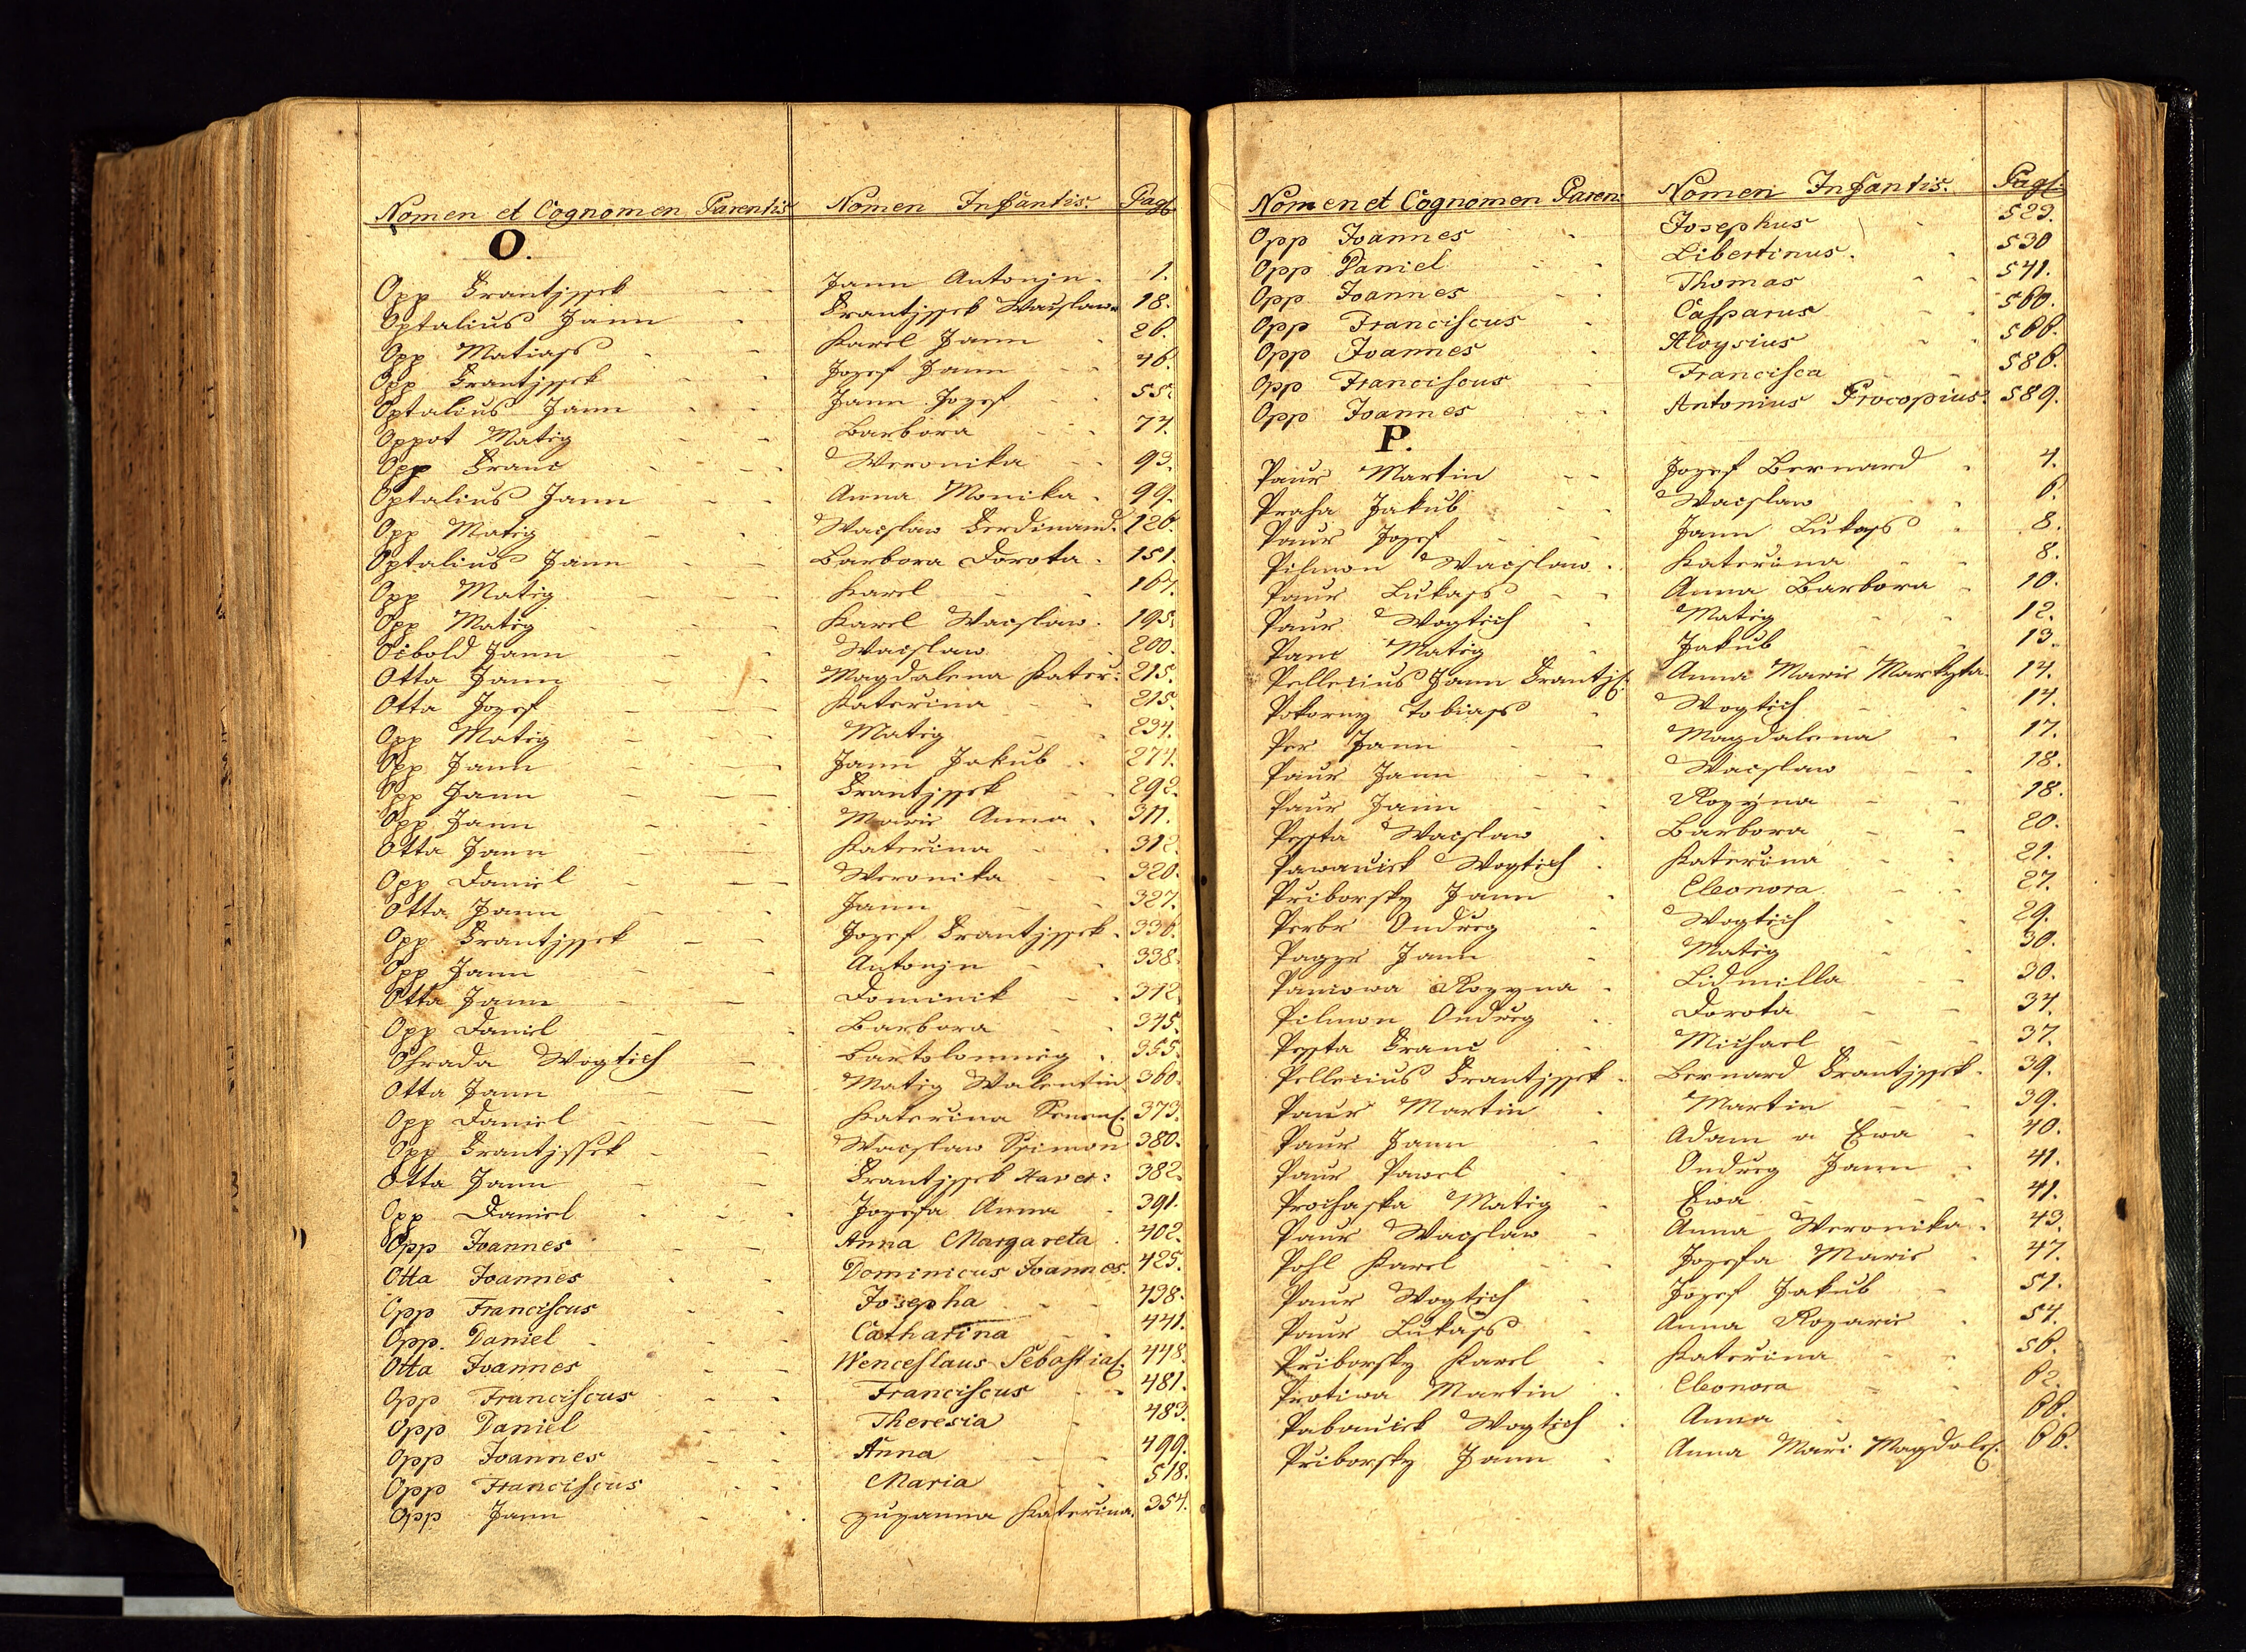 Nomen et Cognomen Parentis Nomen Infantis. Pag.
O.
Opp Frantjssek Jann Antonjn 1.
Optalius Jann Frantjssek Waczlaw 18.
Opp Matiass Karel Jann 26.
Opp Frantjssek Jozef Jann 46.
Optalius Jann Jann Jozef 55.
Oppot Matig Barbora 77.
Opp Franc Weronika 93.
Optalius Jann Anna Monika 99.
Opp Matig Waczlaw Ferdinand. 126.
Optalius Jann Barbora Dorota 151.
Opp Matig Karel 167.
Opp Matig Karel Waczlaw 195.
Ocbold Jann Waczlaw 200.
Otta Jann Magdalena Kater: 215.
Otta Jozef Katerina 215.
Opp Matig Matig 234.
Opp Jann Jann Jakub 274.
Opp Jann Frantjssek 292.
Opp Jann Marie Anna 311.
Otta Jann Katerina 312.
Opp Daniel Weronika 320.
Otta Jann Jann 327.
Opp Frantjssek Jozef Frantjssek 336.
Opp Jann Antonjn 338.
Otta Jann Dominik 342.
Opp Daniel Barbora 345.
Ohrada Wogtiech Bartolomneg 355.
Otta Jann Matig Walentin 360.
Opp Daniel Katerina 373.
Opp Frantjssek Waczlaw Ssimon 380.
Otta Jann Frantjssek Xaver: 382.
Opp Daniel Jozefa Anna 391.
Opp Joannes Anna Margareta 402.
Otta Joannes Dominicus Joannes. 425.
Opp Franciscus Josepha 438.
Opp. Daniel Catharina 441.
Otta Joannes Wenceslaus Sebastia 448.
Opp Franciscus Franciscus 481.
Opp Daniel Theresia 483.
Opp Joannes Anna 499.
Opp Franciscus Maria 518.
Opp Jann Zuzanna Katerina. 354.
Nomen et Cognomen Paren: Nomen Infantis. Pag.
Opp Joannes Josephus 523.
Opp Daniel Libertinus. 530
Opp Joannes Thomas 541.
Opp Franciscus Casparus 560.
Opp Joannes Aloysius 566.
Opp Franciscus Francisca 586.
Opp Joannes Antonius Procopius. 589.
P.
Paur Martin Jozef Bernard 4.
Praha Jakub Waczlaw 6.
Paur Jozef Jann Lukass 8.
Pilmon Waczlaw Katerina 8.
Paur Lukass Anna Barbora 10.
Paur Wogtiech Matig 12.
Panc Matig Jakub 13.
Pellecius Jann Frantjs: Anna Marie Markyta 14.
Pokorny Tobiass Wogtiech 14.
Per Jann Magdalena 17.
Paur Jann Waczlaw 18.
Paur Jann Rozyna 18.
Pessta Waczlaw Barbora 20.
Pawaucek Wogtiech Katerina 21.
Priborsky Jann Eleonora 27.
Perbr Ondreg Wogtiech 29.
Pager Jann Matig 30.
Paniowa Rozyna Lidmilla 30.
Pilmon Ondreg Dorota 34.
Pessta Franc Michael 37.
Pellecius Frantjssek Bernard Frantjssek 39.
Paur Martin Martin 39.
Paur Jann Adam a Ewa 40.
Paur Pawel Ondreg Jann 41.
Prochaska Matig Ewa 41.
Paur Waczlaw Anna Weronika 43.
Pohl Karel Jozefa Marie 47.
Paur Wogtiech Jozef Jakub 51.
Paur Lukass Anna Rozarie 54.
Priborsky Karel Katerina 56.
Protiwa Martin Eleonora 62.
Pabaucek Wogtiech Anna 66.
Priborsky Jann Anna Mari Magdale: 66.